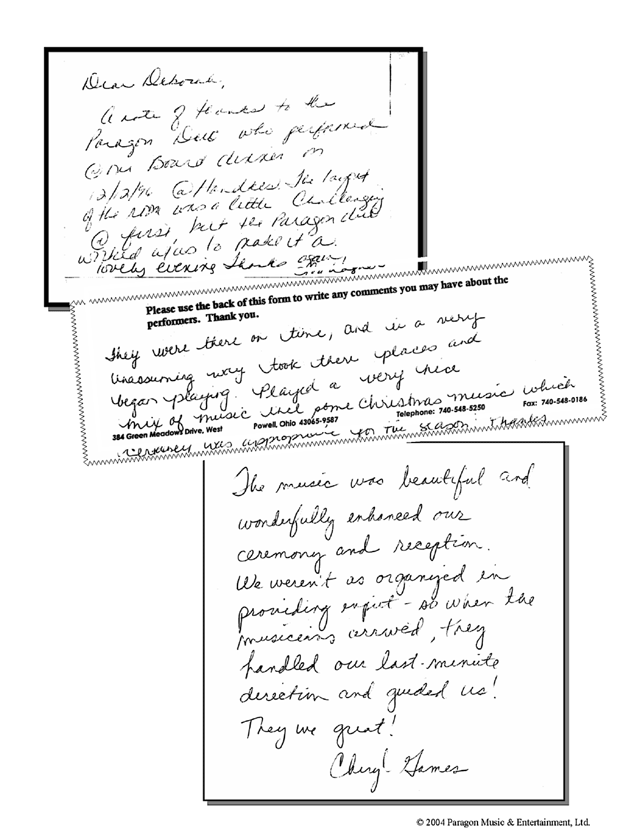 Dear Deborah,
A note of thanks to the
Paragon Duo who performed
@ our Board dinner on
12/2/96 @ The layout
of the room was a little challenging
@ first, but the Paragon duo
worked w/us to make it a
lovely evening. Thanks again,
Please use the back of this form to write any comments you may have about the
performers. Thank you.
They were there on time, and in a very
unassuming way took there places and
began playing. Played a very nice
mix of music incl some Christmas music which
384 Green Meadows Drive, West Powell, Ohio 43065-9587 Telephone: 740-548-5250 Fax: 740-548-0186
certainly was appropriate for the season. Thanks
The music was beautiful and
wonderfully enhanced our
ceremony and reception.
We weren't as organized in
providing input - so when the
musicians arrived, they
handled our last-minute
direction and guided us!
They were great!
Cheryl James
© 2004 Paragon Music & Entertainment, Ltd.